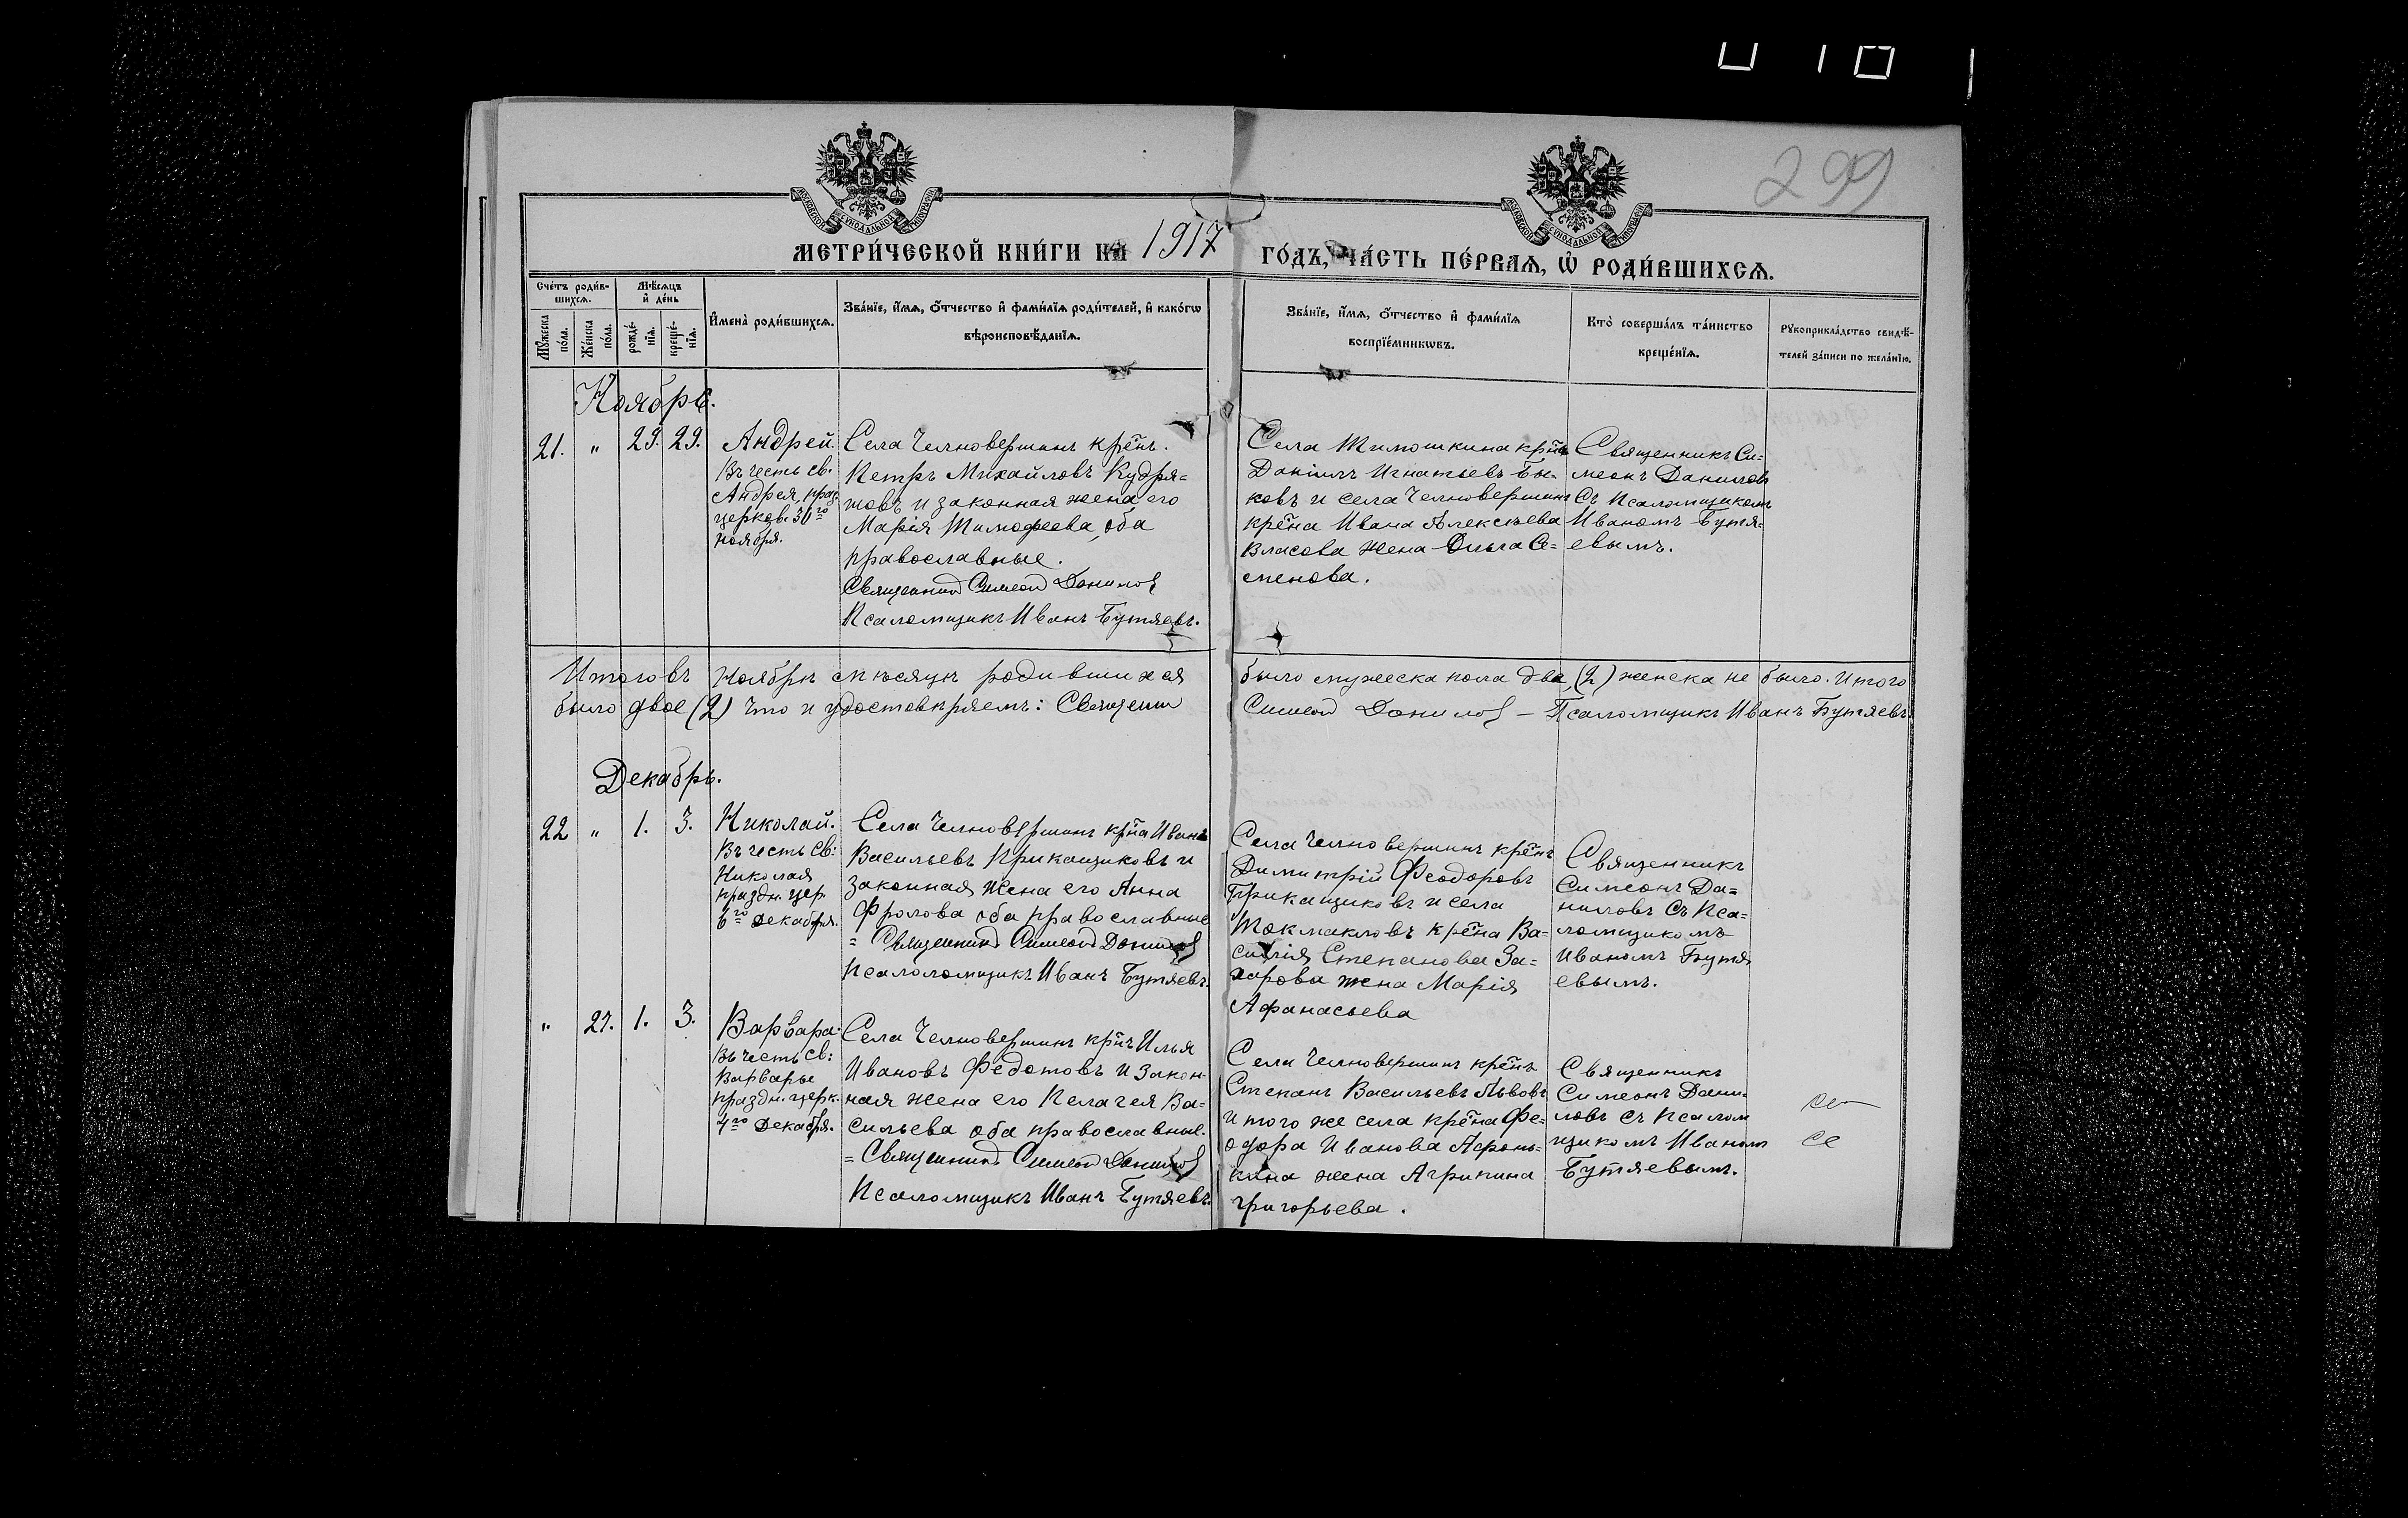 299
МОСКОВСКОЙ СѴНОДАЛЬНОЙ ТИПОГРАФІИ
МОСКОВСКОЙ СѴНОДАЛЬНОЙ ТИПОГРАФІИ
МЕТРИ́ЧЕСКОЙ КНИ́ГИ НА 1917 ГО́ДЪ, ЧА́СТЬ ПЕ́РВАѦ, Ѡ҆ РОДИ́ВШИХСѦ.
Сче́тъ роди́в-
шихсѧ.
Мѣ́сѧцъ
и҆ де́нь
Мꙋ́жеска
по́ла.
Же́нска
по́ла.
рожде́-
нїѧ.
креще́-
нїѧ.
И҆мена̀ роди́вшихсѧ.
Зва́нїе, и҆́мѧ, ѻ҆́тчество и҆ фами́лїѧ роди́телей, и҆ како́гѡ
вѣроисповѣ́данїѧ.
Зва́нїе, и҆́мѧ, ѻ҆́тчество и҆ фами́лїѧ
воспрїе́мникѡвъ.
Кто̀ соверша́лъ та́инство
креще́нїѧ.
Рꙋкоприкла́дство свидѣ́-
телей за́писи по жела́нїю.
Ноябрь.
21. " 29. 29.
Андрей.
Въ честь св.
Андрея, праз.
церков. 30го
ноября.
Села Челновершинъ крѣнъ.
Петръ Михайловъ Кудря=
шовъ и законная жена его
Марія Тимофеева, оба
православные.
Священник Симеон Данилов
Псаломщикъ Иванъ Бутяевъ.
Села Тимошкина крнъ
Даніилъ Игнатьевъ Бы-
ковъ и села Челновершинъ
крена Ивана Алексѣева
Власова жена Ольга Се=
менова.
Священникъ Си=
меонъ Даниловъ
съ Псаломщикомъ
Иваномъ Бутя=
евымъ.
Итого въ Ноябрѣ мѣсяцѣ родившихся было мужеска пола два (2) женска не было. Итого
было двое (2) Что и удостовѣряемъ: Священник Симеон Данилов — Псаломщикъ Иванъ Бутяевъ.
Декабрь.
22 " 1. 3.
Николай.
Въ честь Св:
Николая
праздн. цер.
6го Декабря.
Села Челновершинъ крна Иванъ
Васильевъ Прикащиковъ и
законная жена его Анна
Фролова оба православные
= Священник Симеон Данилов
Псаломщикъ Иванъ Бутяевъ.
Села Челновершинъ кренъ
Димитрій Феодоровъ
Прикащиковъ и села
Токмакловъ крена Ва=
силія Степанова За=
харова жена Марія
Афанасьева
Священникъ
Симеонъ Да=
ниловъ съ Пса=
ломщикомъ
Иваномъ Бутя
евымъ.
" 27. 1. 3.
Варвара.
Въ честь Св:
Варвары
праздн. церк.
4го Декабря.
Села Челновершинъ крнъ Илья
Ивановъ Федотовъ и закон-
ная жена его Пелагея Ва=
сильева оба православные.
= Священник Симеон Данилов
Псаломщикъ Иванъ Бутяевъ.
Села Челновершинъ кренъ
Степанъ Васильевъ Львовъ
и того же села крена Фе=
одора Иванова Афонь-
кина жена Агрипина
Григорьева.
Священникъ
Симеонъ Дани-
ловъ съ Псалом
щикомъ Иваномъ
Бутяевымъ.